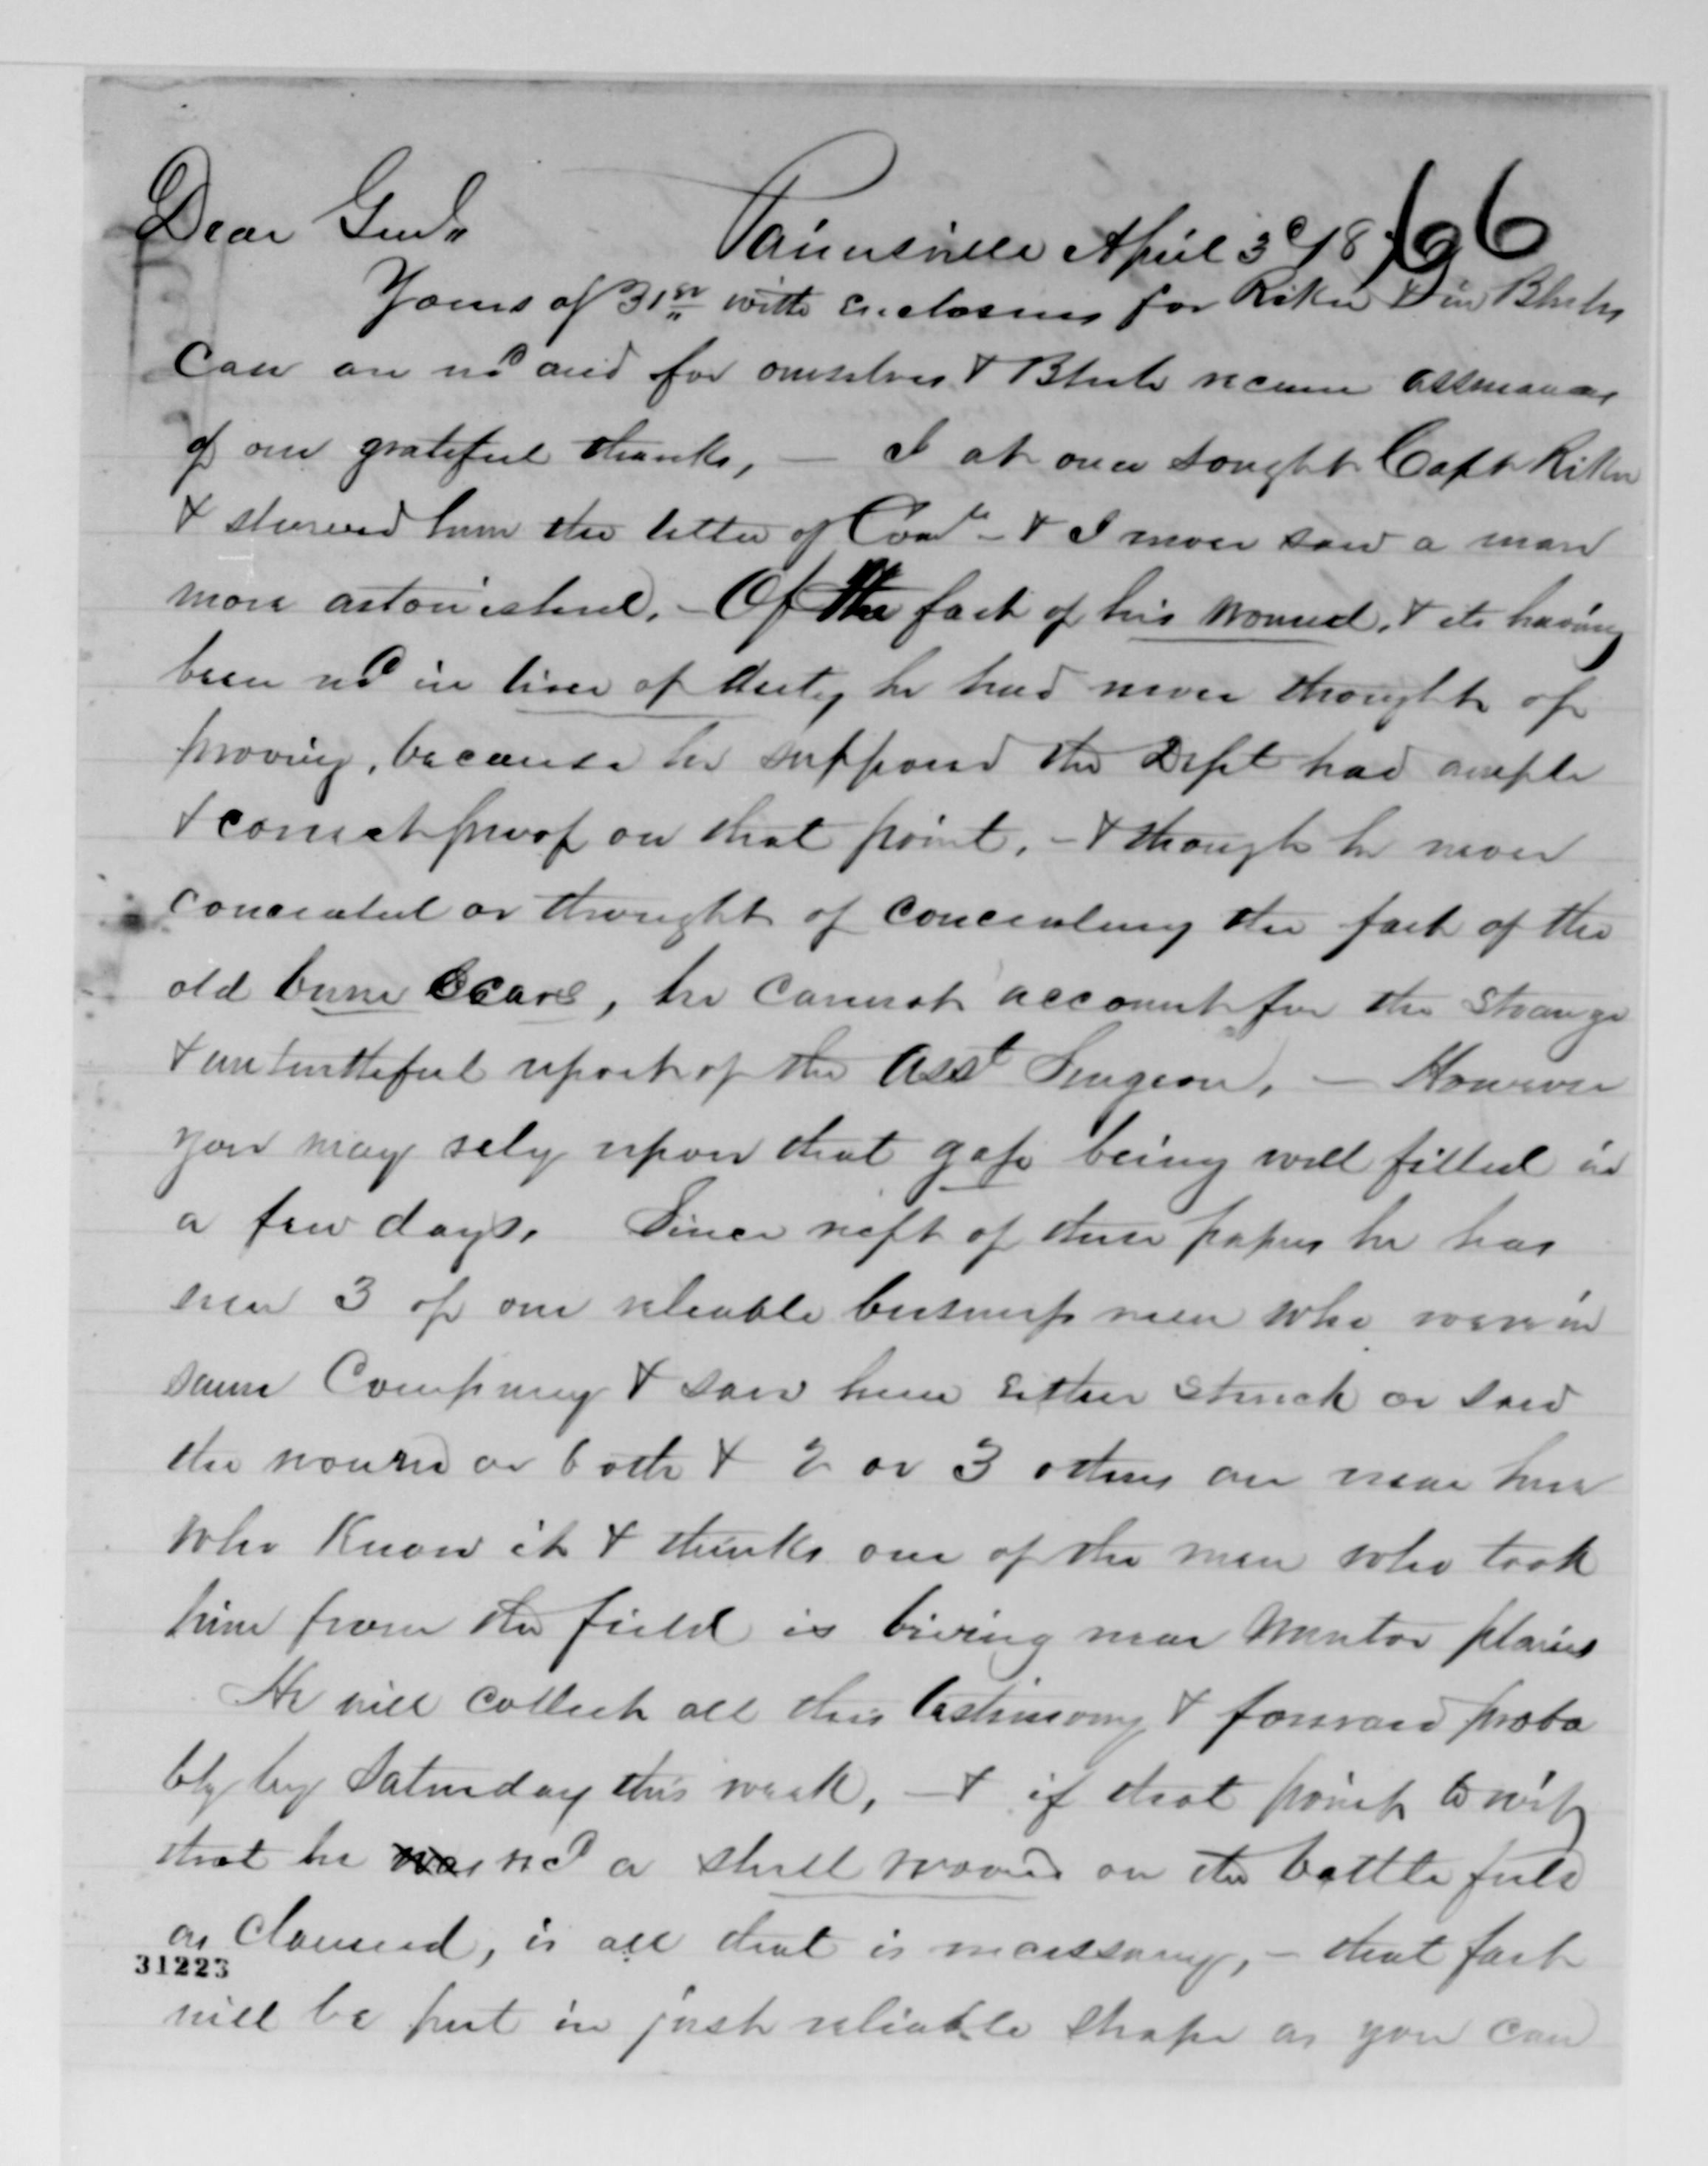 Dear Genl. Painesville April 3d/18 66
Yours of 31st with enclosures for Riker & in
case are recd and for ourselves & receive assurances
of our grateful thanks, — I at once sought Capt Riker
& showed him the letter of – & I never saw a man
more astonished. – Of the fact of his wound, & its having
been recd in line of duty he had never thought of
proving, because he supposed the Dept had ample
& correct proof on that point, – & though he never
concealed or thought of concealing the fact of the
old burn scars, he cannot account for the strange
& untruthful report of the Asst Surgeon, — However
you may rely upon that gap being well filled in
a few days. Since rcpt of these papers he has
seen 3 of our reliable business men who were in
same Company & saw him either struck or saw
the wound or both & 2 or 3 others are near here
who know it & thinks one of the men who took
him from the field is living near Mentor plains
He will collect all this testimony & forward proba
bly by Saturday this week, – & if that point to wit,
that he was recd a shell wound on the battle field
as claimed, is all that is necessary, – that fact
31223
will be put in just reliable shape as you can